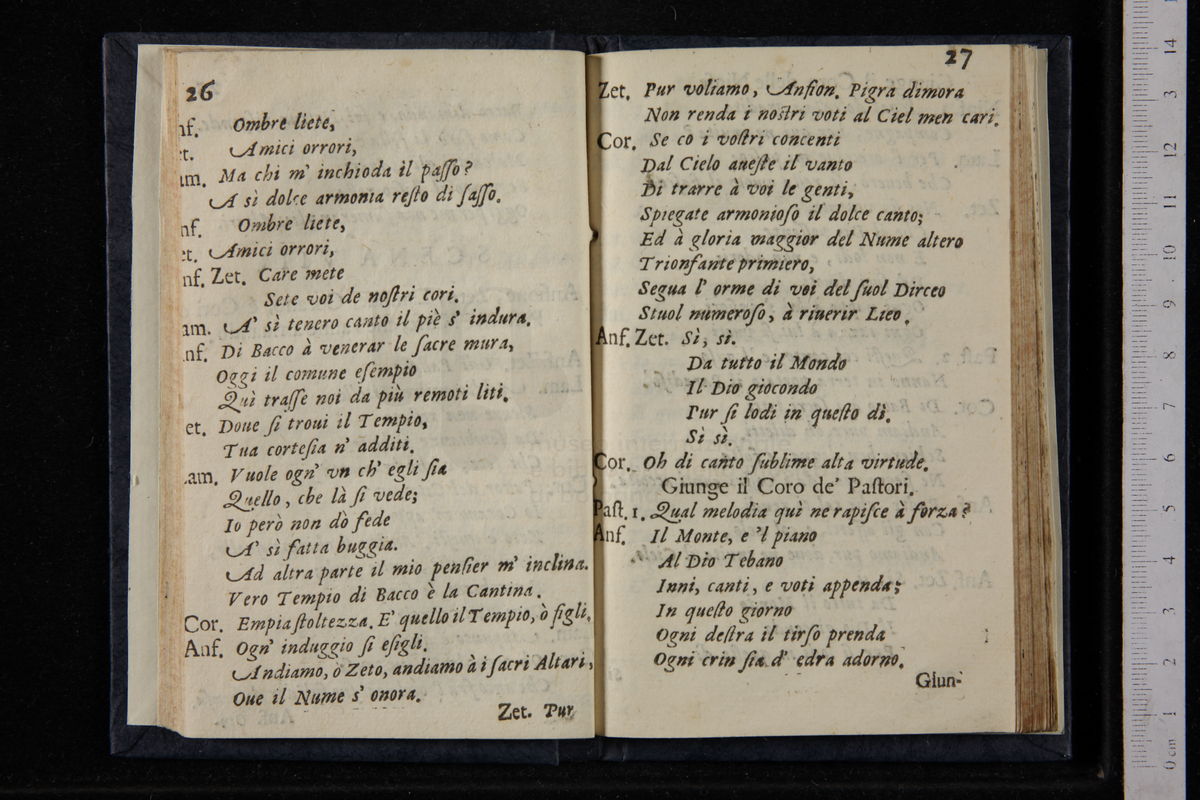 26
nf. Ombre liete,
t. Amici orrori,
am. Ma chi m' inchioda il paſſo?
A sì dolce armonia reſto di ſaſſo.
nf. Ombre liete,
et. Amici orrori,
nf. Zet. Care mete
Sete voi de noſtri cori.
am. A' sì tenero canto il piè s' indura.
nf. Di Bacco à venerar le ſacre mura,
Oggi il comune eſempio
Quì traſſe noi da più remoti liti.
et. Doue ſi troui il Tempio,
Tua corteſia n' additi.
am. Vuole ogn' vn ch' egli ſia
Quello, che là ſi vede;
Io però non dò fede
A' sì fatta buggia.
Ad altra parte il mio penſier m' inclina.
Vero Tempio di Bacco è la Cantina.
Cor. Empia ſtoltezza. E' quello il Tempio, ò figli,
Anf. Ogn' induggio ſi eſigli.
Andiamo, ò Zeto, andiamo à i ſacri Altari,
Oue il Nume s' onora.
Zet. Pur
27
Zet. Pur voliamo, Anfion. Pigra dimora
Non renda i noſtri voti al Ciel men cari.
Cor. Se co i voſtri concenti
Dal Cielo aueſte il vanto
Di trarre à voi le genti,
Spiegate armonioſo il dolce canto;
Ed à gloria maggior del Nume altero
Trionfante primiero,
Segua l' orme di voi del ſuol Dirceo
Stuol numeroſo, à riuerir Lieo.
Anf. Zet. Sì, sì.
Da tutto il Mondo
Il Dio giocondo
Pur ſi lodi in queſto dì.
Sì sì.
Cor. Oh di canto ſublime alta virtude.
Giunge il Coro de' Paſtori.
Paſt. 1. Qual melodia quì ne rapiſce à forza?
Anf. Il Monte, e 'l piano
Al Dio Tebano
Inni, canti, e voti appenda;
In queſto giorno
Ogni deſtra il tirſo prenda
Ogni crin ſia d' edra adorno.
Giun-
0 cm 1 2 3 4 5 6 7 8 9 10 11 12 3 14